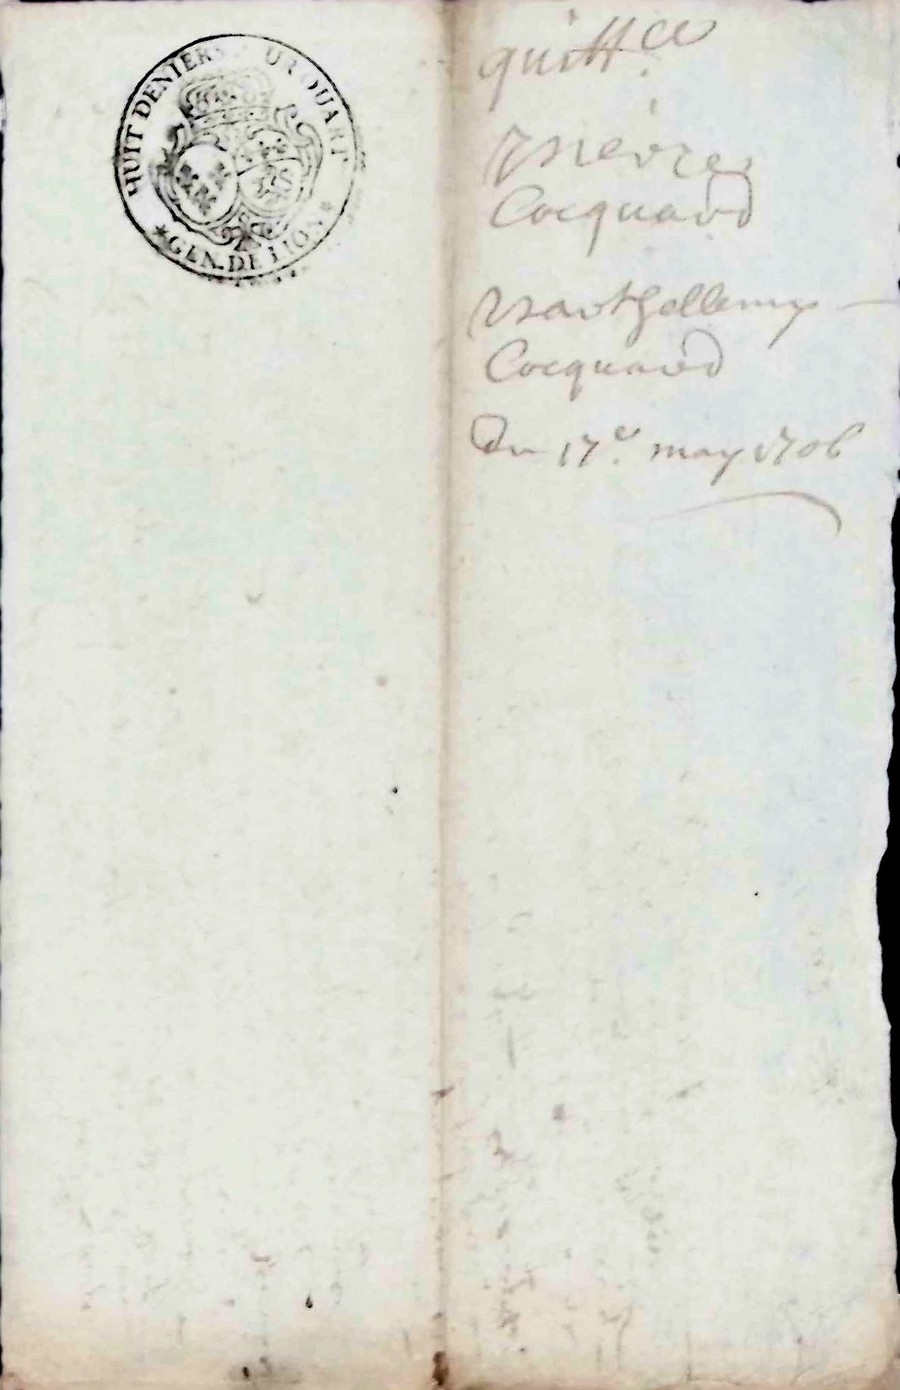 HUIT DENIERS UR QUART
* GEN. DE LION *
quitt.ce
Cocquard
Barthellemy
Cocquard
du 17e. may 1706